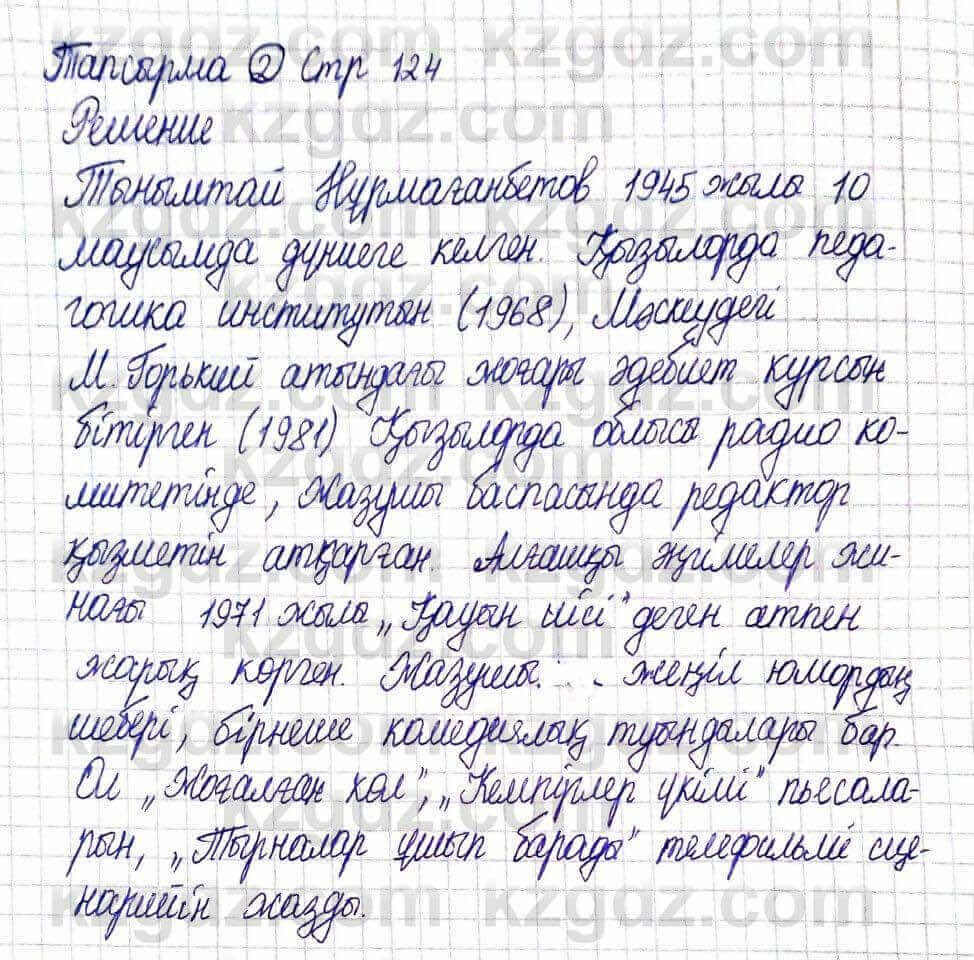 Тапсырма 2 Стр 124
Решение
Тынымтай Нұрмағанбетов 1945 жылы 10
маусымда дүниеге келген. Қызылорда педа-
гогика институтын (1968), Мәскеудегі
М. Горький атындағы жоғары әдебиет курсын
бітірген (1981) Қызылорда облысы радио ко-
митетінде, Жазушы баспасында редактор
қызметін атқарған. Алғашқы әңгімелер жи-
нағы 1971 жылы „Қауын иісі" деген атпен
жарық көрген. Жазушы. . . жеңіл юмордың
шебері, бірнеше комедиялық туындалары бар.
Ол „Жоғалған хол", „Кемпірлер үкімі" пьесала-
рын, „Тырналар ұшып барады" телефильмі сце-
нарийін жазды.